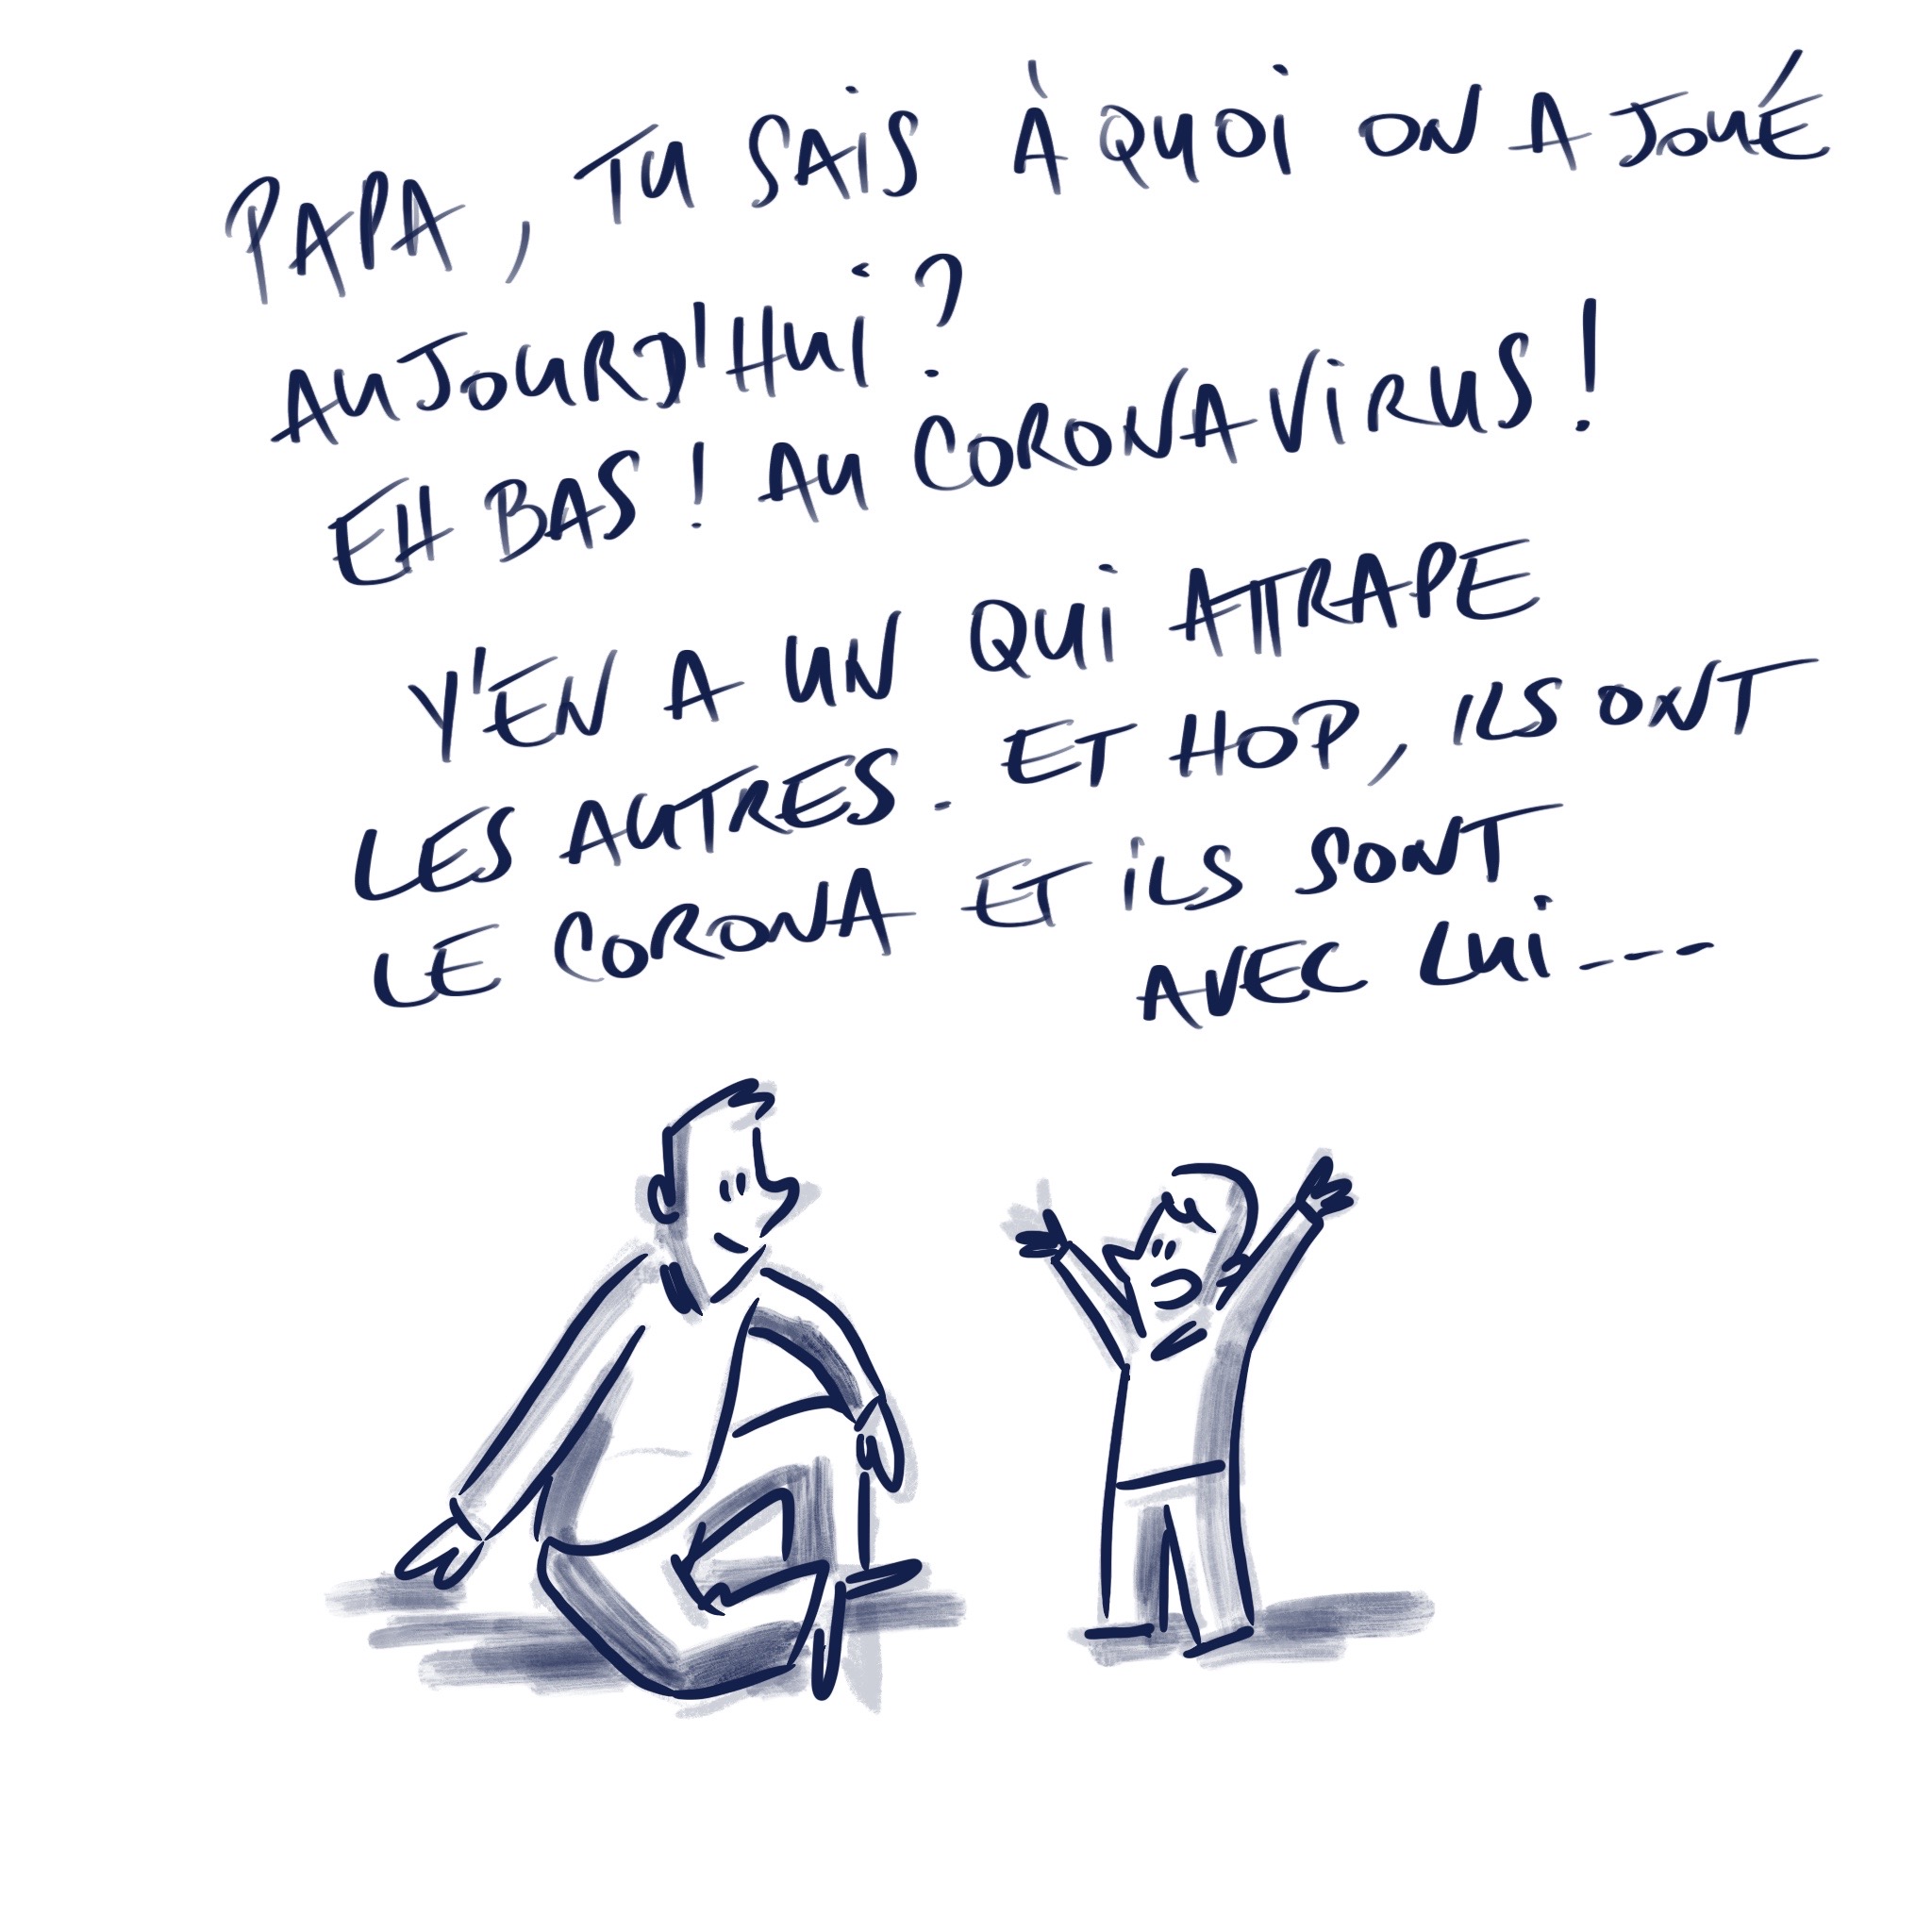 PAPA, TU SAIS À QUOI ON A JOUÉ
AUJOURD'HUI ?
EH BAS ! AU CORONAVIRUS !
Y'EN A UN QUI ATTRAPE
LES AUTRES. ET HOP, ILS ONT
LE CORONA ET ILS SONT
AVEC LUI...